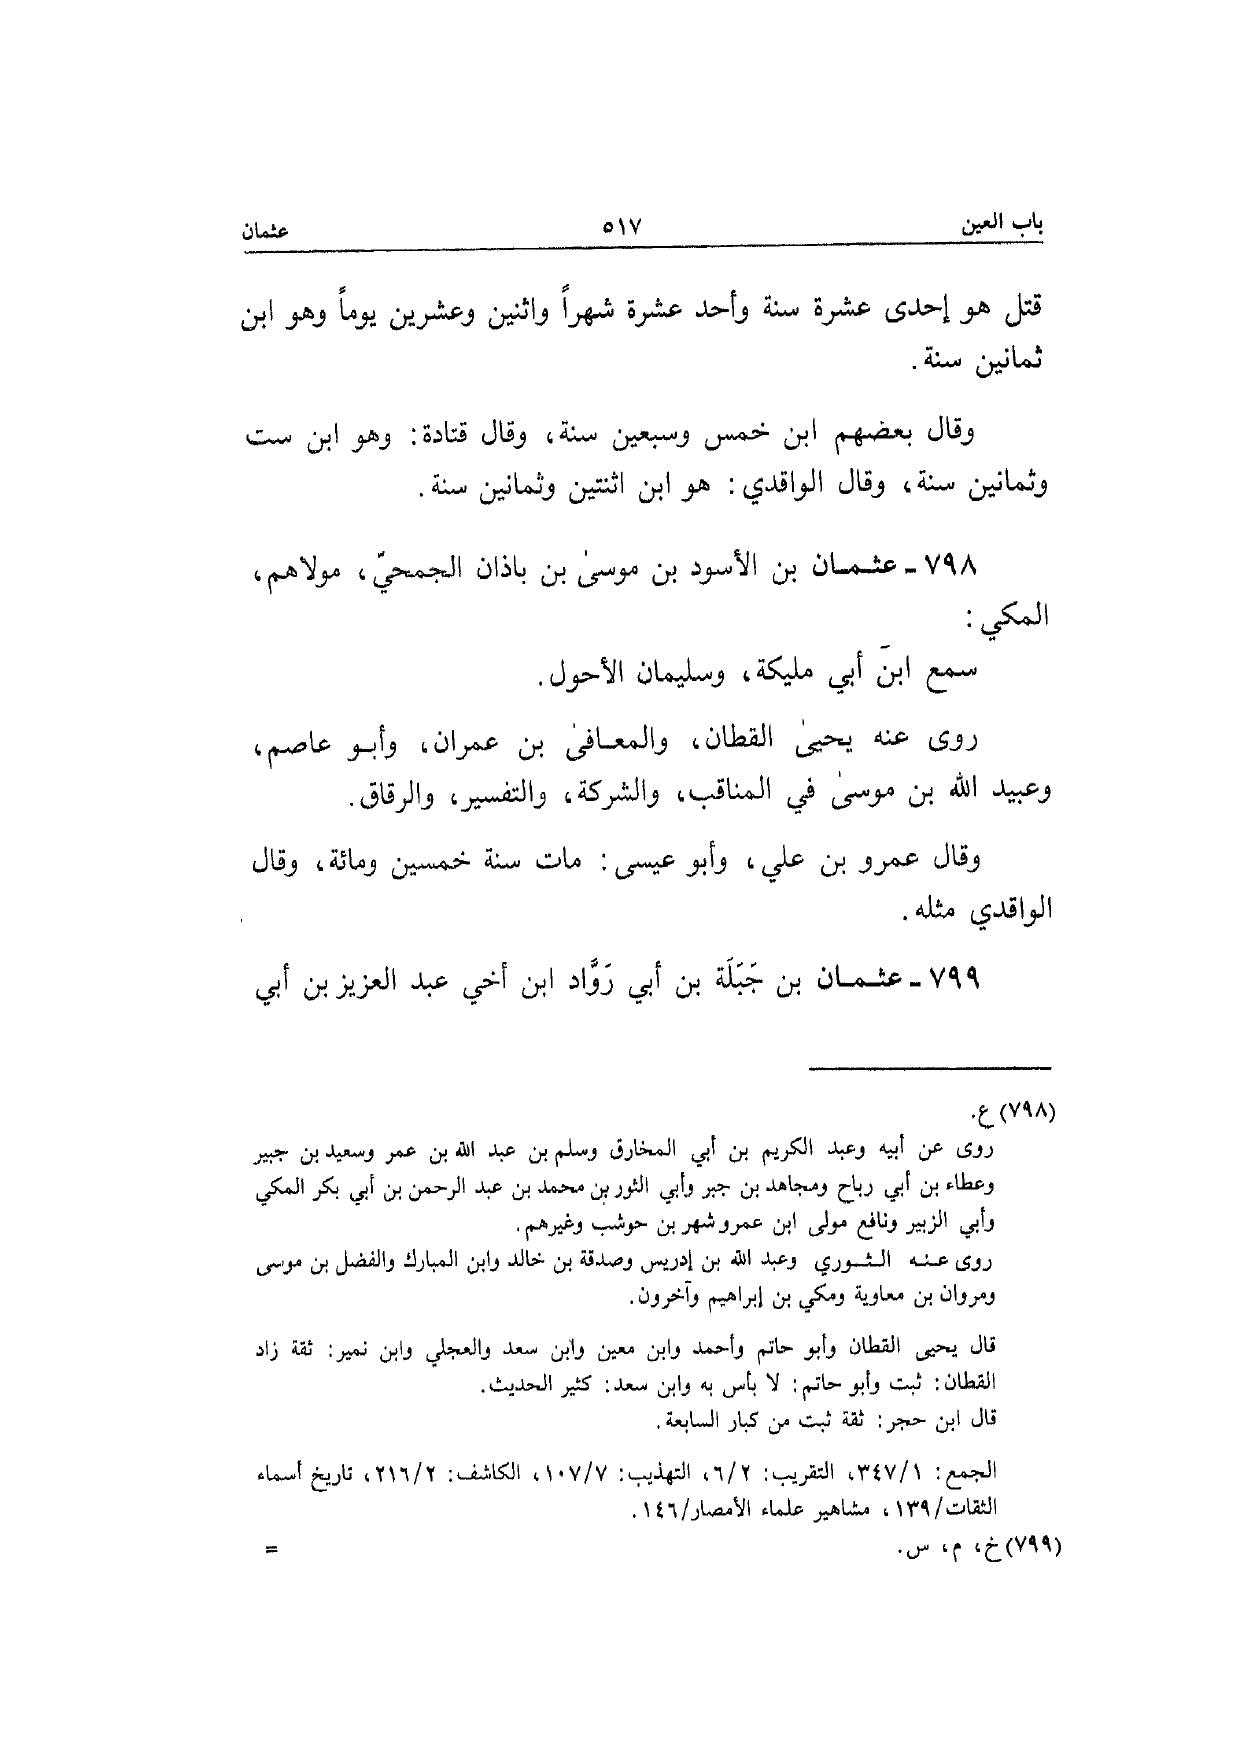 باب العين ٥١٧ عثمان
قتل هو إحدى عشرة سنة وأحد عشرة شهراً واثنين وعشرين يوماً وهو ابن
ثمانين سنة.
وقال بعضهم ابن خمس وسبعين سنة، وقال قتادة: وهو ابن ست
وثمانين سنة، وقال الواقدي: هو ابن اثنتين وثمانين سنة.
٧٩٨ ـ عثمان بن الأسود بن موسىٰ بن باذان الجمحيّ، مولاهم،
المكي:
سمع ابنَ أبي مليكة، وسليمان الأحول.
روى عنه يحيىٰ القطان، والمعافىٰ بن عمران، وأبو عاصم،
وعبيد الله بن موسىٰ في المناقب، والشركة، والتفسير، والرقاق.
وقال عمرو بن علي، وأبو عيسى: مات سنة خمسين ومائة، وقال
الواقدي مثله.
٧٩٩ ـ عثمان بن جَبَلَة بن أبي رَوَّاد ابن أخي عبد العزيز بن أبي
(٧٩٨) ع.
روى عن أبيه وعبد الكريم بن أبي المخارق وسلم بن عبد الله بن عمر وسعيد بن جبير
وعطاء بن أبي رباح ومجاهد بن جبر وأبي الثور بن محمد بن عبد الرحمن بن أبي بكر المكي
وأبي الزبير ونافع مولى ابن عمرو شهر بن حوشب وغيرهم.
روى عنه الثوري وعبد الله بن إدريس وصدقة بن خالد وابن المبارك والفضل بن موسى
ومروان بن معاوية ومكي بن إبراهيم وآخرون.
قال يحيى القطان وأبو حاتم وأحمد وابن معين وابن سعد والعجلي وابن نمير: ثقة زاد
القطان: ثبت وأبو حاتم: لا بأس به وابن سعد: كثير الحديث.
قال ابن حجر: ثقة ثبت من كبار السابعة.
الجمع: ٣٤٧/١، التقريب: ٦/٢، التهذيب: ١٠٧/٧، الكاشف: ٢١٦/٢، تاريخ أسماء
الثقات/١٣٩، مشاهير علماء الأمصار/١٤٦.
(٧٩٩) خ، م، س. =